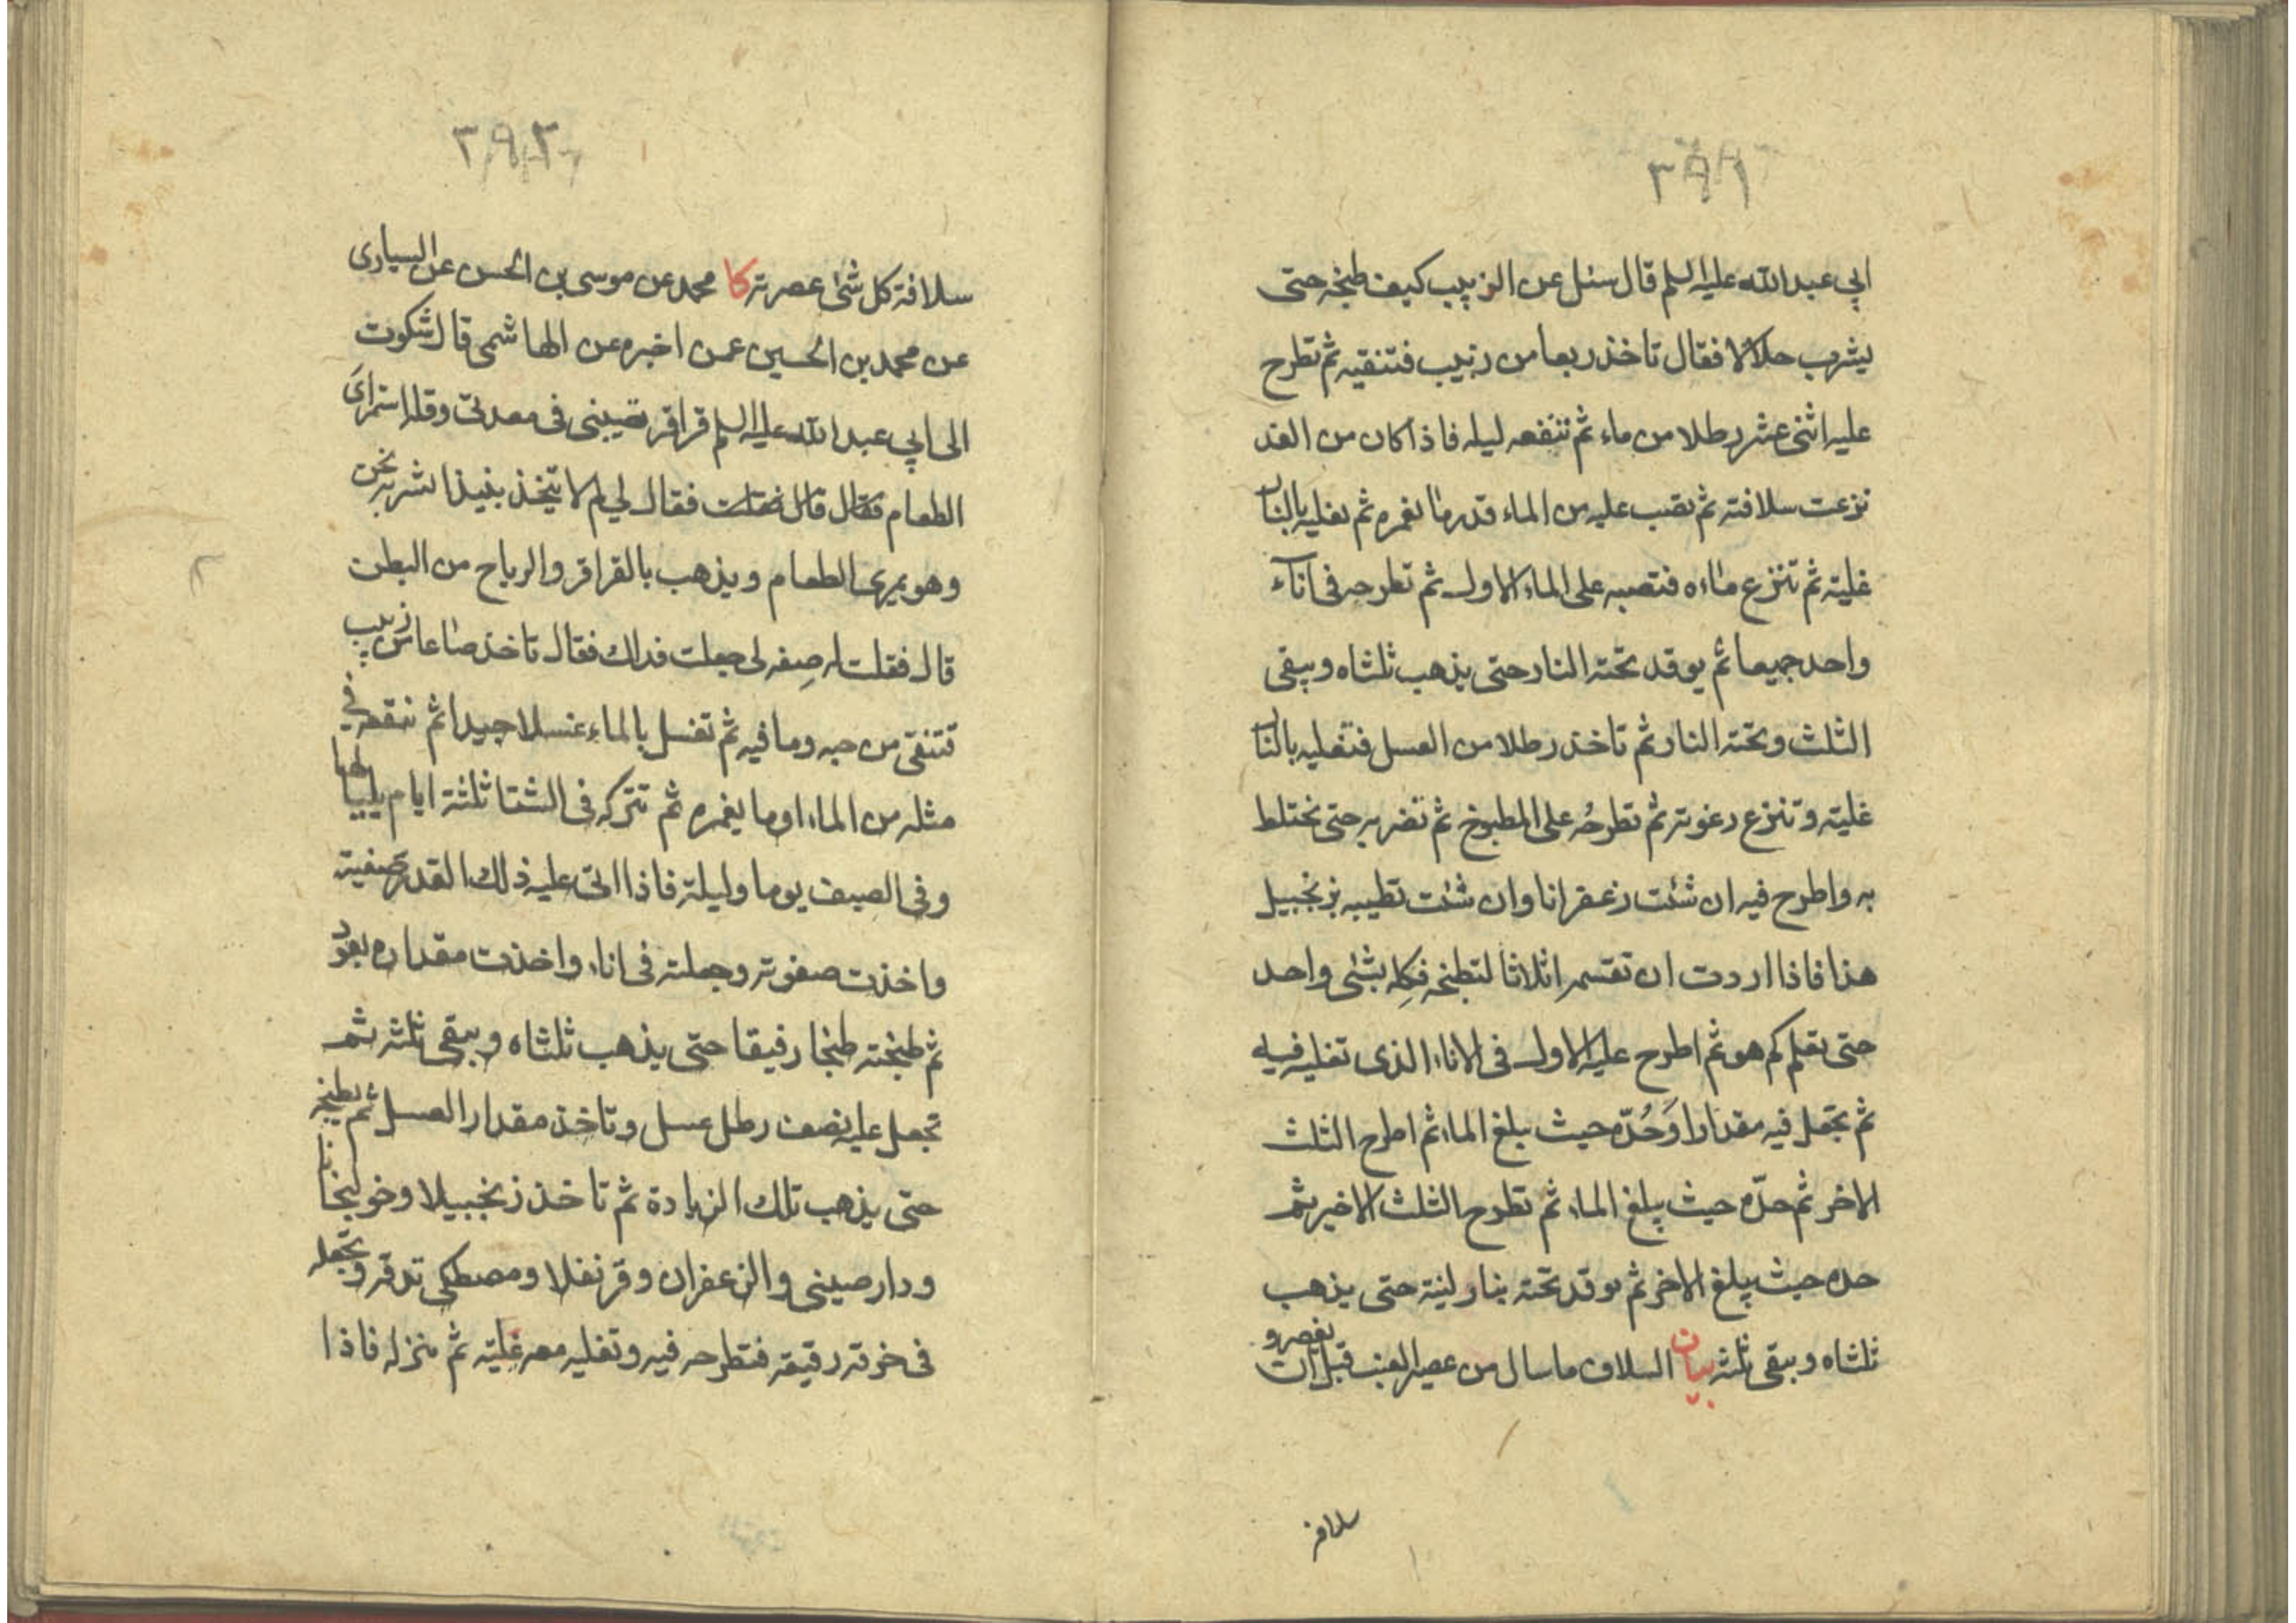 ٣٩١
ابي عبد الله عليه السلم قال سئل عن الزبيب كيف طبخه حتى
يشرب حلالا فقال تاخذ ربعا من زبيب فتنقيه ثم تطرح
عليه اثنى عشر رطلا من ماء ثم تنقعه ليله فاذا كان من الغد
نزعت سلافته ثم تصب عليه من الماء قدر ما يغمره ثم تغليه بالنار
غلية ثم تنزع ماءه فتصبه على الماء الاول ثم تطرحه فى اناء
واحد جميعا ثم يوقد تحته النار حتى يذهب ثلثاه ويبقى
الثلث وتحته النار ثم تاخذ رطلا من العسل فتغليه بالنار
غلية وتنزع رغوته ثم تطرحُه على المطبوخ ثم تضربه حتى تختلط
به واطرح فيه ان شئت زعفرانا وان شئت تطيبه بزنجبيل
هذا فاذا اردت ان تقسمه اثلاثا لتطبخه فكِله بشئ واحد
حتى تعلم كم هو ثم اطرح عليه الاول فى الاناء الذى تغليه فيه
ثم تجعل فيه مقدارا وَحُدّه حيث يبلغ الماء ثم اطرح الثلث
الاخر ثم حدّه حيث يبلغ الماء ثم تطرح الثلث الاخير ثم
حده حيث يبلغ الاخر ثم توقد تحته بنار لينة حتى يذهب
ثلثاه ويبقى ثلثه بيان السلاف ما سال من عصير العنب قبل ان يعصر و
سلافة
٣٩٢
سلافة كل شئ عصرته كا محمد عن موسى بن الحسن عن السيارى
عن محمد بن الحسين عمن اخبره عن الهاشمى قال شكوت
الى ابي عبد الله عليه السلم قراقر تصيبنى فى معدتى وقله استمراى
الطعام فقال قال فقلت فقال لي لم لا تتخذ نبيذا نشربه نحن
وهو يمرى الطعام ويذهب بالقراقر والرياح من البطن
قال فقلت له صِفه لى جعلت فداك فقال تاخذ صاعا من زبيب
فتنقى من حبه وما فيه ثم تغسل بالماء غسلا جيدا ثم تنقعه في
مثله من الماء او ما يغمره ثم تتركه فى الشتا ثلثة ايام بلياليها
وفى الصيف يوما وليلة فاذا اتى عليه ذلك القدر صفيته
واخذت صفوته وجعلته فى اناء واخذت مقداره بعود
ثم طبخته طبخا رفيقا حتى يذهب ثلثاه ويبقى ثلثه ثم
تجعل عليه نصف رطل عسل وتاخذ مقدار العسل ثم تطبخه
حتى يذهب تلك الزيادة ثم تاخذ زنجبيلا وخولنجانا
ودارصينى والزعفران وقرنفلا ومصطكى تدقه وتجعله
فى خرقة رقيقه فتطرحه فيه وتغليه معه غلية ثم تنزله فاذا